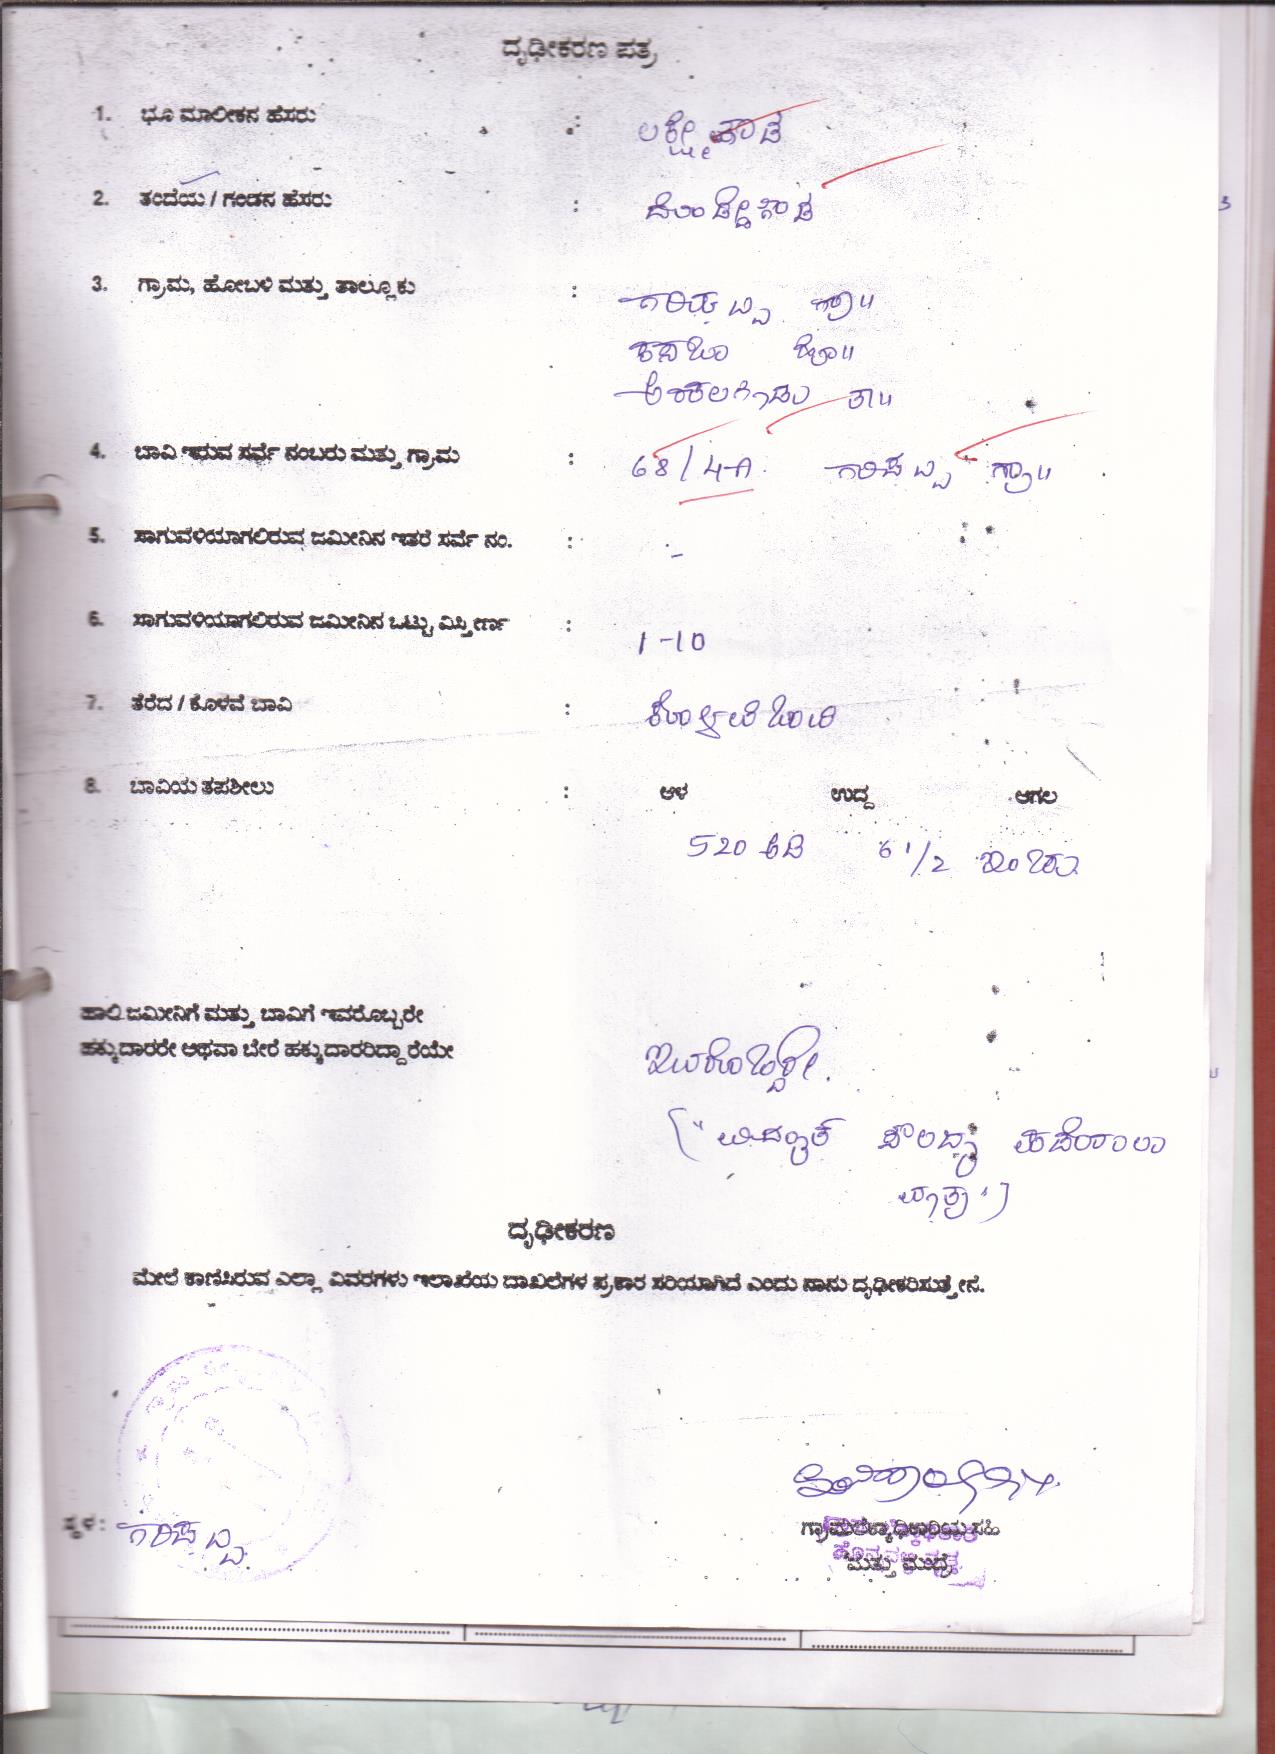 ದೃಢೀಕರಣ ಪತ್ರ
1. ಭೂ ಮಾಲೀಕನ ಹೆಸರು : ಲಕ್ಷ್ಮೇಗೌಡ
2. ತಂದೆಯ / ಗಂಡನ ಹೆಸರು :
3. ಗ್ರಾಮ, ಹೋಬಳಿ ಮತ್ತು ತಾಲ್ಲೂಕು : ಗಂಗಿಘಟ್ಟ ಗ್ರಾ॥
ಕಸಬಾ ಹೋ॥
ಅರಕಲಗೂಡು ತಾ॥
4. ಬಾವಿ ಇರುವ ಸರ್ವೆ ನಂಬರು ಮತ್ತು ಗ್ರಾಮ : 68/4-A. ಗ್ರಾ॥
5. ಸಾಗುವಳಿಯಾಗಲಿರುವ ಜಮೀನಿನ ಇತರೆ ಸರ್ವೆ ನಂ. : -
6. ಸಾಗುವಳಿಯಾಗಲಿರುವ ಜಮೀನಿನ ಒಟ್ಟು ವಿಸ್ತೀರ್ಣ : 1-10
7. ತೆರೆದ / ಕೊಳವೆ ಬಾವಿ : ಕೊಳವೆ ಬಾವಿ
8. ಬಾವಿಯ ತಪಶೀಲು : ಆಳ ಉದ್ದ ಅಗಲ
520 ಅಡಿ 6 1/2 ಇಂಚು
ಹಾಲಿ ಜಮೀನಿಗೆ ಮತ್ತು ಬಾವಿಗೆ ಇವರೊಬ್ಬರೇ
ಹಕ್ಕುದಾರರೇ ಅಥವಾ ಬೇರೆ ಹಕ್ಕುದಾರರಿದ್ದಾರೆಯೇ ಇವರೊಬ್ಬರೇ.
("ವಿದ್ಯುತ್ ಸೌಲಭ್ಯ ಪಡೆಯಲು
ಮಾತ್ರ")
ದೃಢೀಕರಣ
ಮೇಲೆ ಕಾಣಿಸಿರುವ ಎಲ್ಲಾ ವಿವರಗಳು ಇಲಾಖೆಯ ದಾಖಲೆಗಳ ಪ್ರಕಾರ ಸರಿಯಾಗಿದೆ ಎಂದು ನಾನು ದೃಢೀಕರಿಸುತ್ತೇನೆ.
ಸ್ಥಳ :
ಗ್ರಾಮಲೆಕ್ಕಾಧಿಕಾರಿಯ ಸಹಿ
ಮತ್ತು ಮುದ್ರೆ